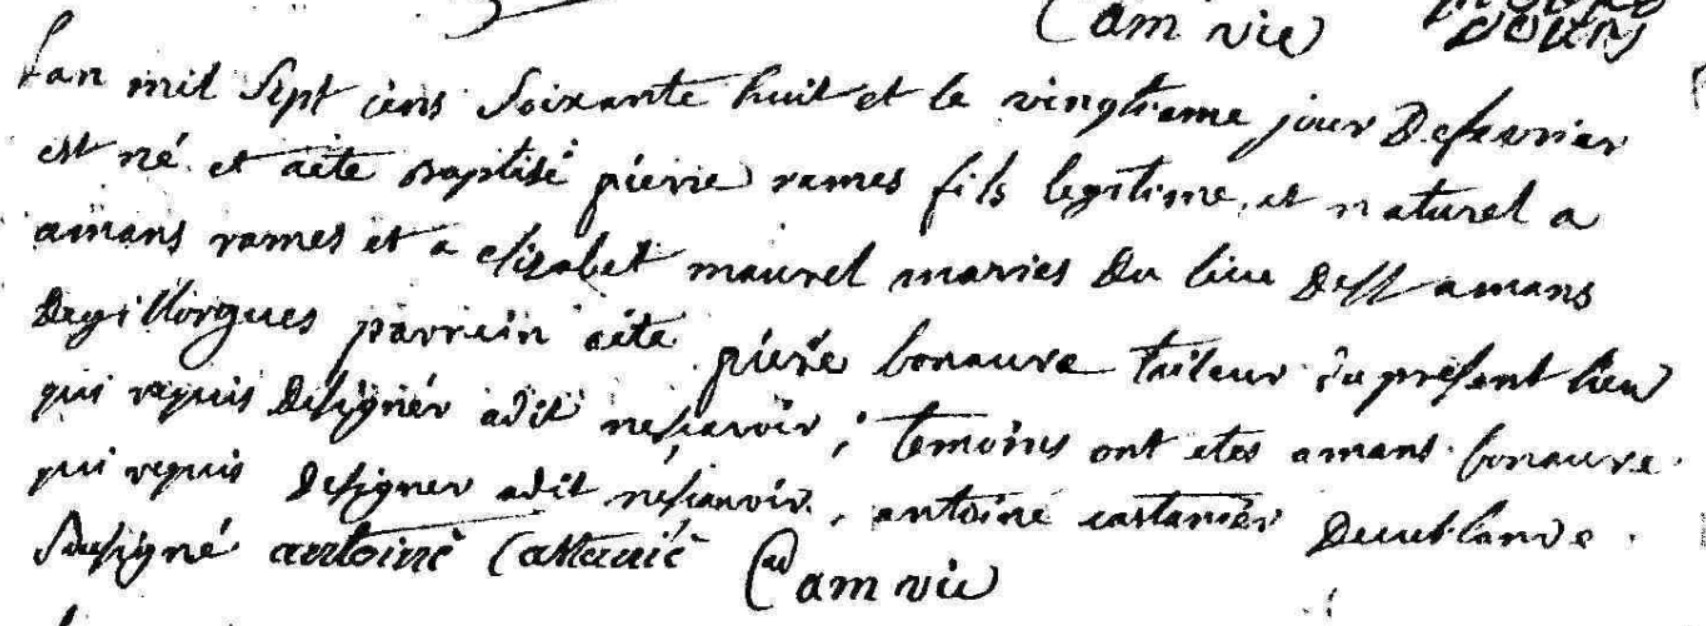 Cam vié
Lan mil sept cens soixante huit et le vingtieme jour Defevrier
est né et aété Baptisé pierre rames fils legitime et naturel a
amans rames et a elizabet maurel maries Du lieu Dest amans
Degillorgues parrein aété pierre bonaure tailleur du present lieu
qui requis Designér adit nesçavoir ; temoins ont etes amans bonaure
qui requis Designer adit nesçavoir, antoine castanier
Sousigné antoine Castanié Cam vié